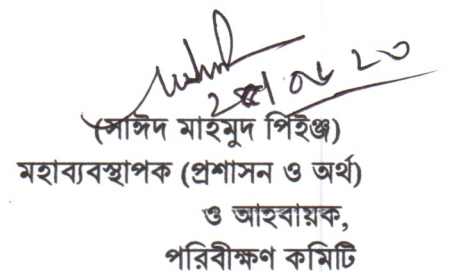 (সাঈদ মাহমুদ পিইঞ্জ)
মহাব্যবস্থাপক (প্রশাসন ও অর্থ)
ও আহবায়ক,
পরিবীক্ষণ কমিটি